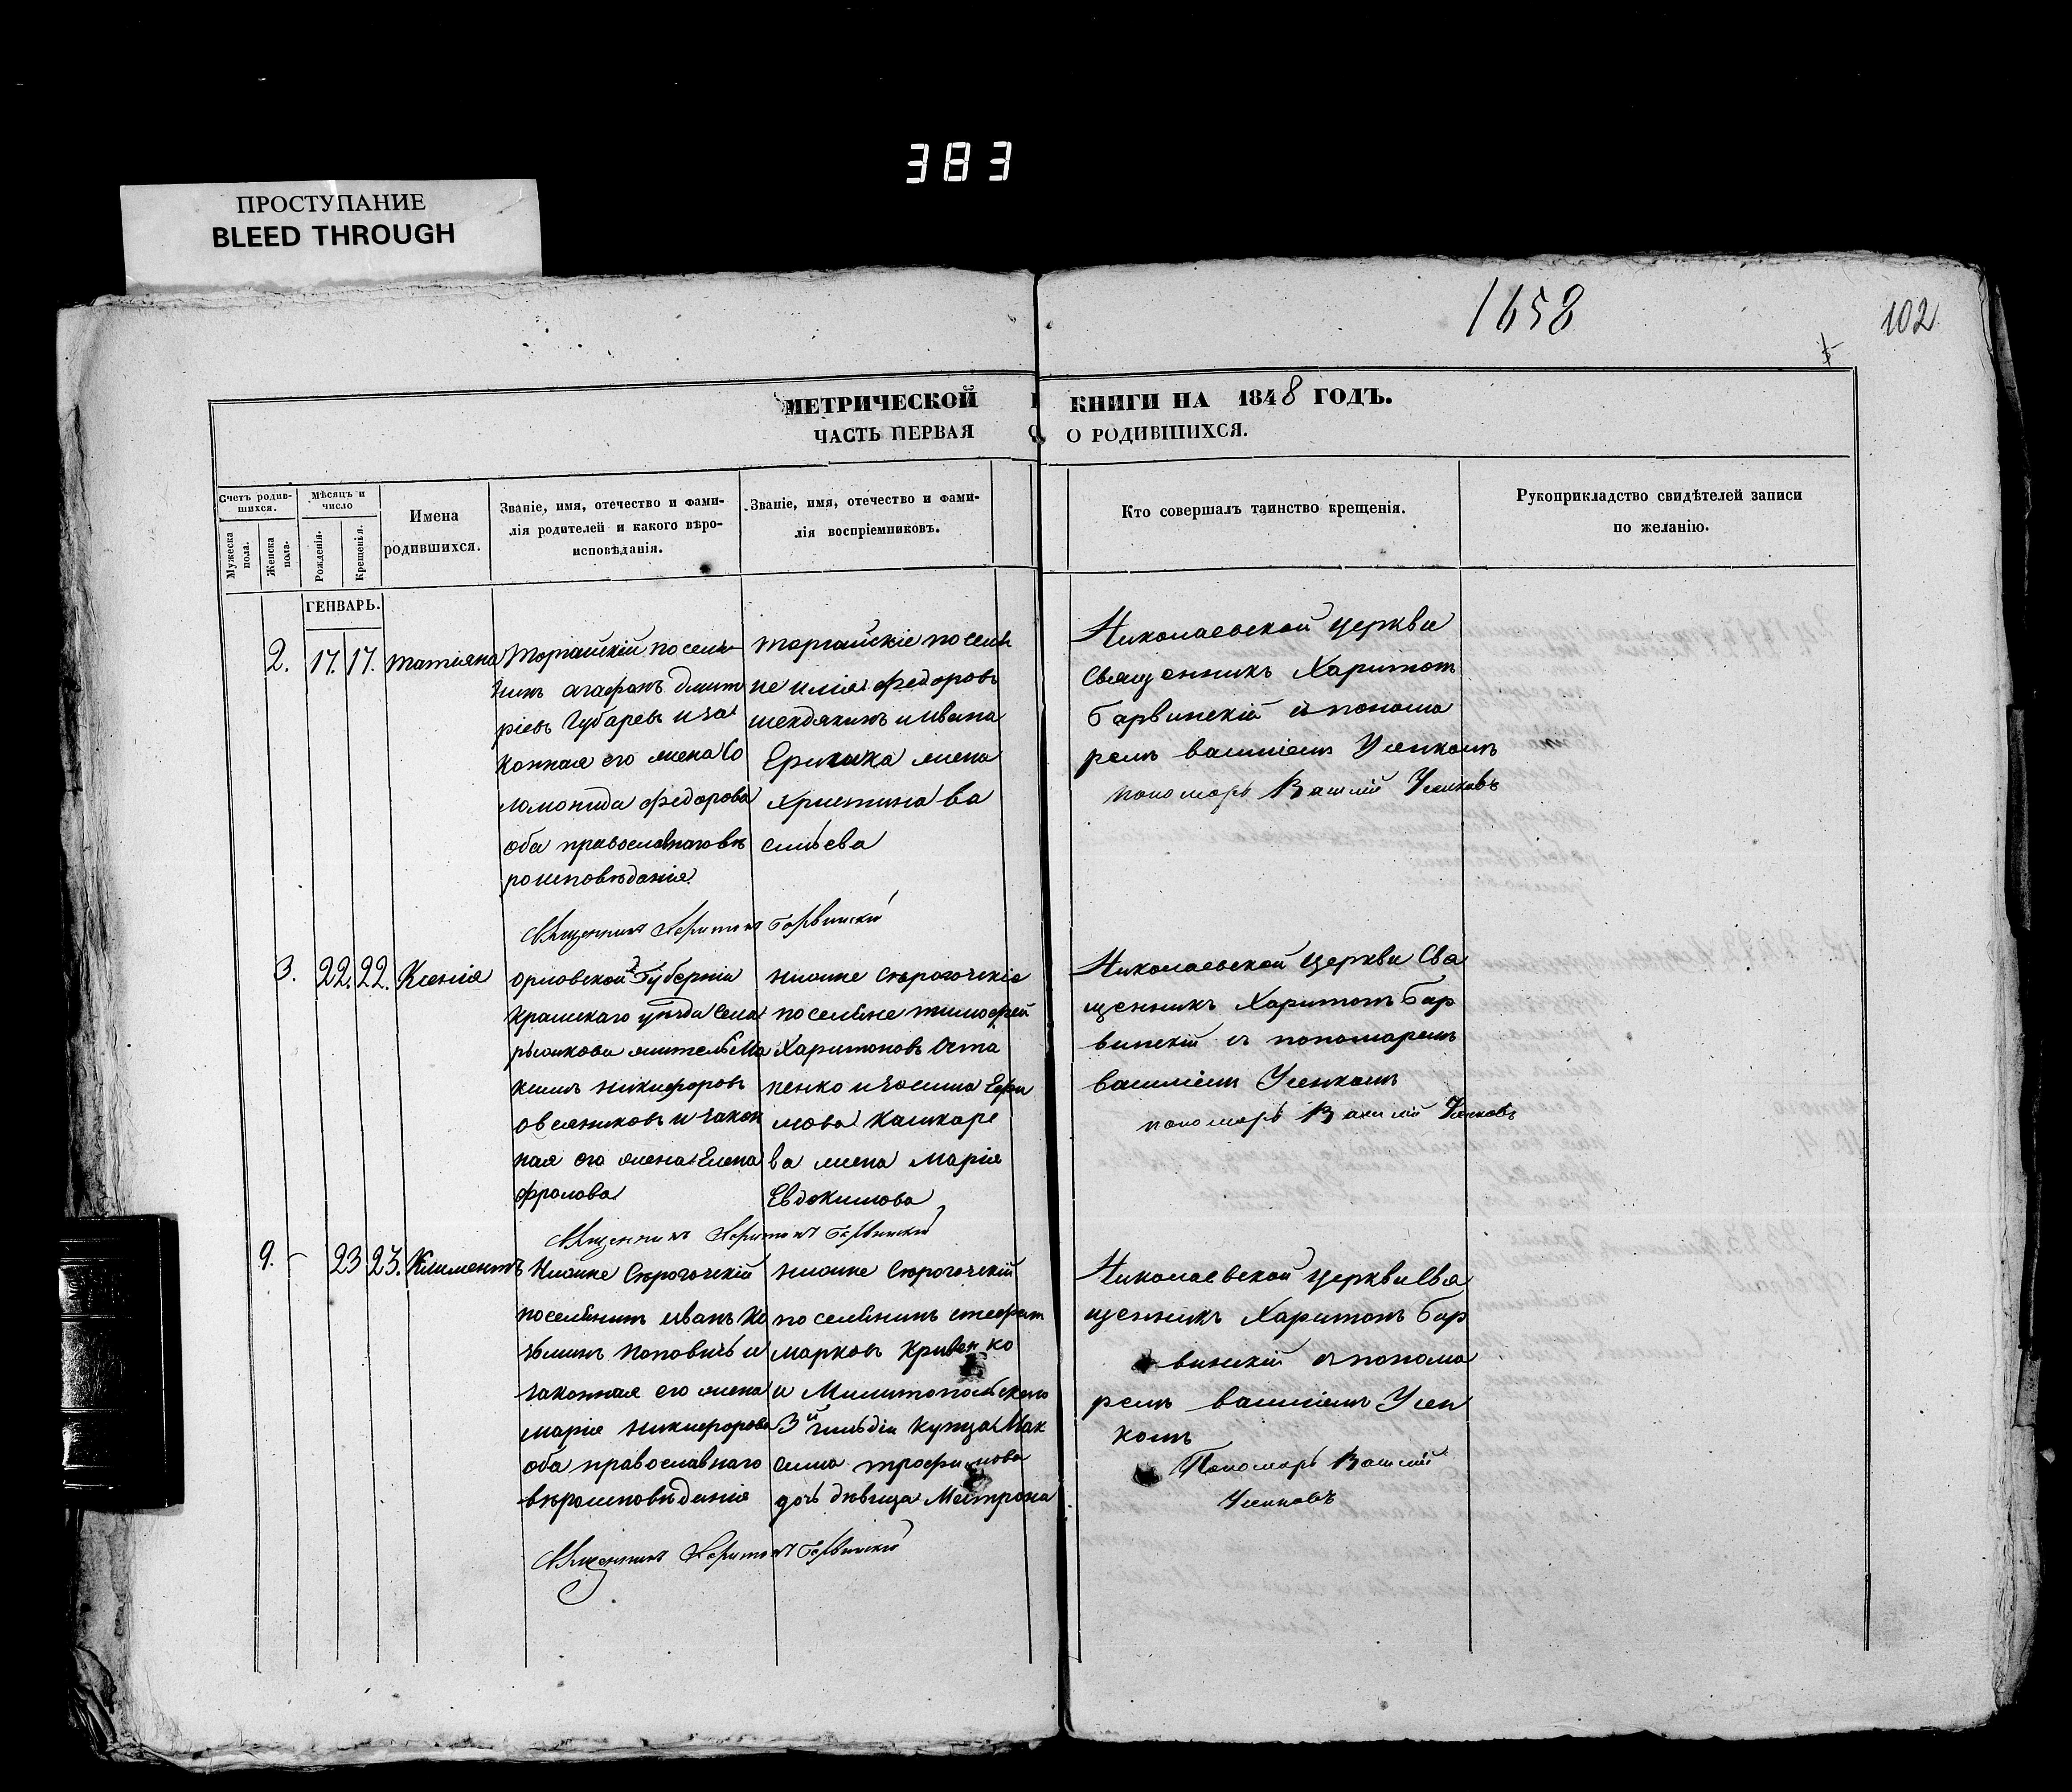 383
ПРОСТУПАНИЕ
BLEED THROUGH
1658
102
МЕТРИЧЕСКОЙ КНИГИ НА 1848 ГОДЪ.
ЧАСТЬ ПЕРВАЯ О РОДИВШИХСЯ.
Счетъ родившихся.
Мужеска пола.
Женска пола.
Мѣсяцъ и число
Рожденія.
Крещенія.
Имена
родившихся.
Званіе, имя, отечество и фами-
лія родителей и какого вѣро-
исповѣданія.
Званіе, имя, отечество и фами-
лія воспріемниковъ.
Кто совершалъ таинство крещенія.
Рукоприкладство свидѣтелей записи
по желанію.
ГЕНВАРЬ.
2. 17. 17. Татіяна
Торгайскій посель
нинъ агафонъ дмит
ріевъ Губаревъ и за
конная его жена Со
ломонида федорова
оба православнаго вѣ
роисповѣданія.
торгайскіе посель
не илія федоровъ
и Ивана
жена
христина ва
сильева
Николаевской церкви
Священникъ Харитонъ
барвинскій съ понома
ремъ василіемъ Усенкомъ
пономарь Василій Усенковъ
Священникъ Харитонъ Барвинскій
3. 22. 22. Ксенія
орловской Губерніи
уѣзда села
житель Ма
ксимъ никифоровъ
овсяниковъ и закон
ная его жена Елена
фролова
нижне Сѣрогозскіе
поселяне тимофей
Харитоновъ Оста
пенко и
мова Кашкаре
ва жена Марія
Евдокимова
Николаевской Церкви Свя
щенникъ Харитонъ бар
винскій съ пономаремъ
василіемъ Усенкомъ
пономарь Василій Усенковъ
Священникъ Харитонъ Барвинскій
9. - 23 23. Климентъ
Нижне Сѣрогозскій
поселянинъ иванъ Ко
зьминъ Поповичь и
законная его жена
марія никифорова
оба православнаго
вѣроисповѣданія
нижне Сѣрогозскій
поселянинъ стефанъ
марковъ Кривенко
и Милитопольскаго
3й гильдіи купца Мак
сима трофимова
дочь дѣвица Матрона
Николаевской церкви Свя
щенникъ Харитонъ бар
винскій съ понома
ремъ василіемъ Усен
комъ
Пономарь Василій
Усенковъ
Священникъ Харитонъ Барвинскій